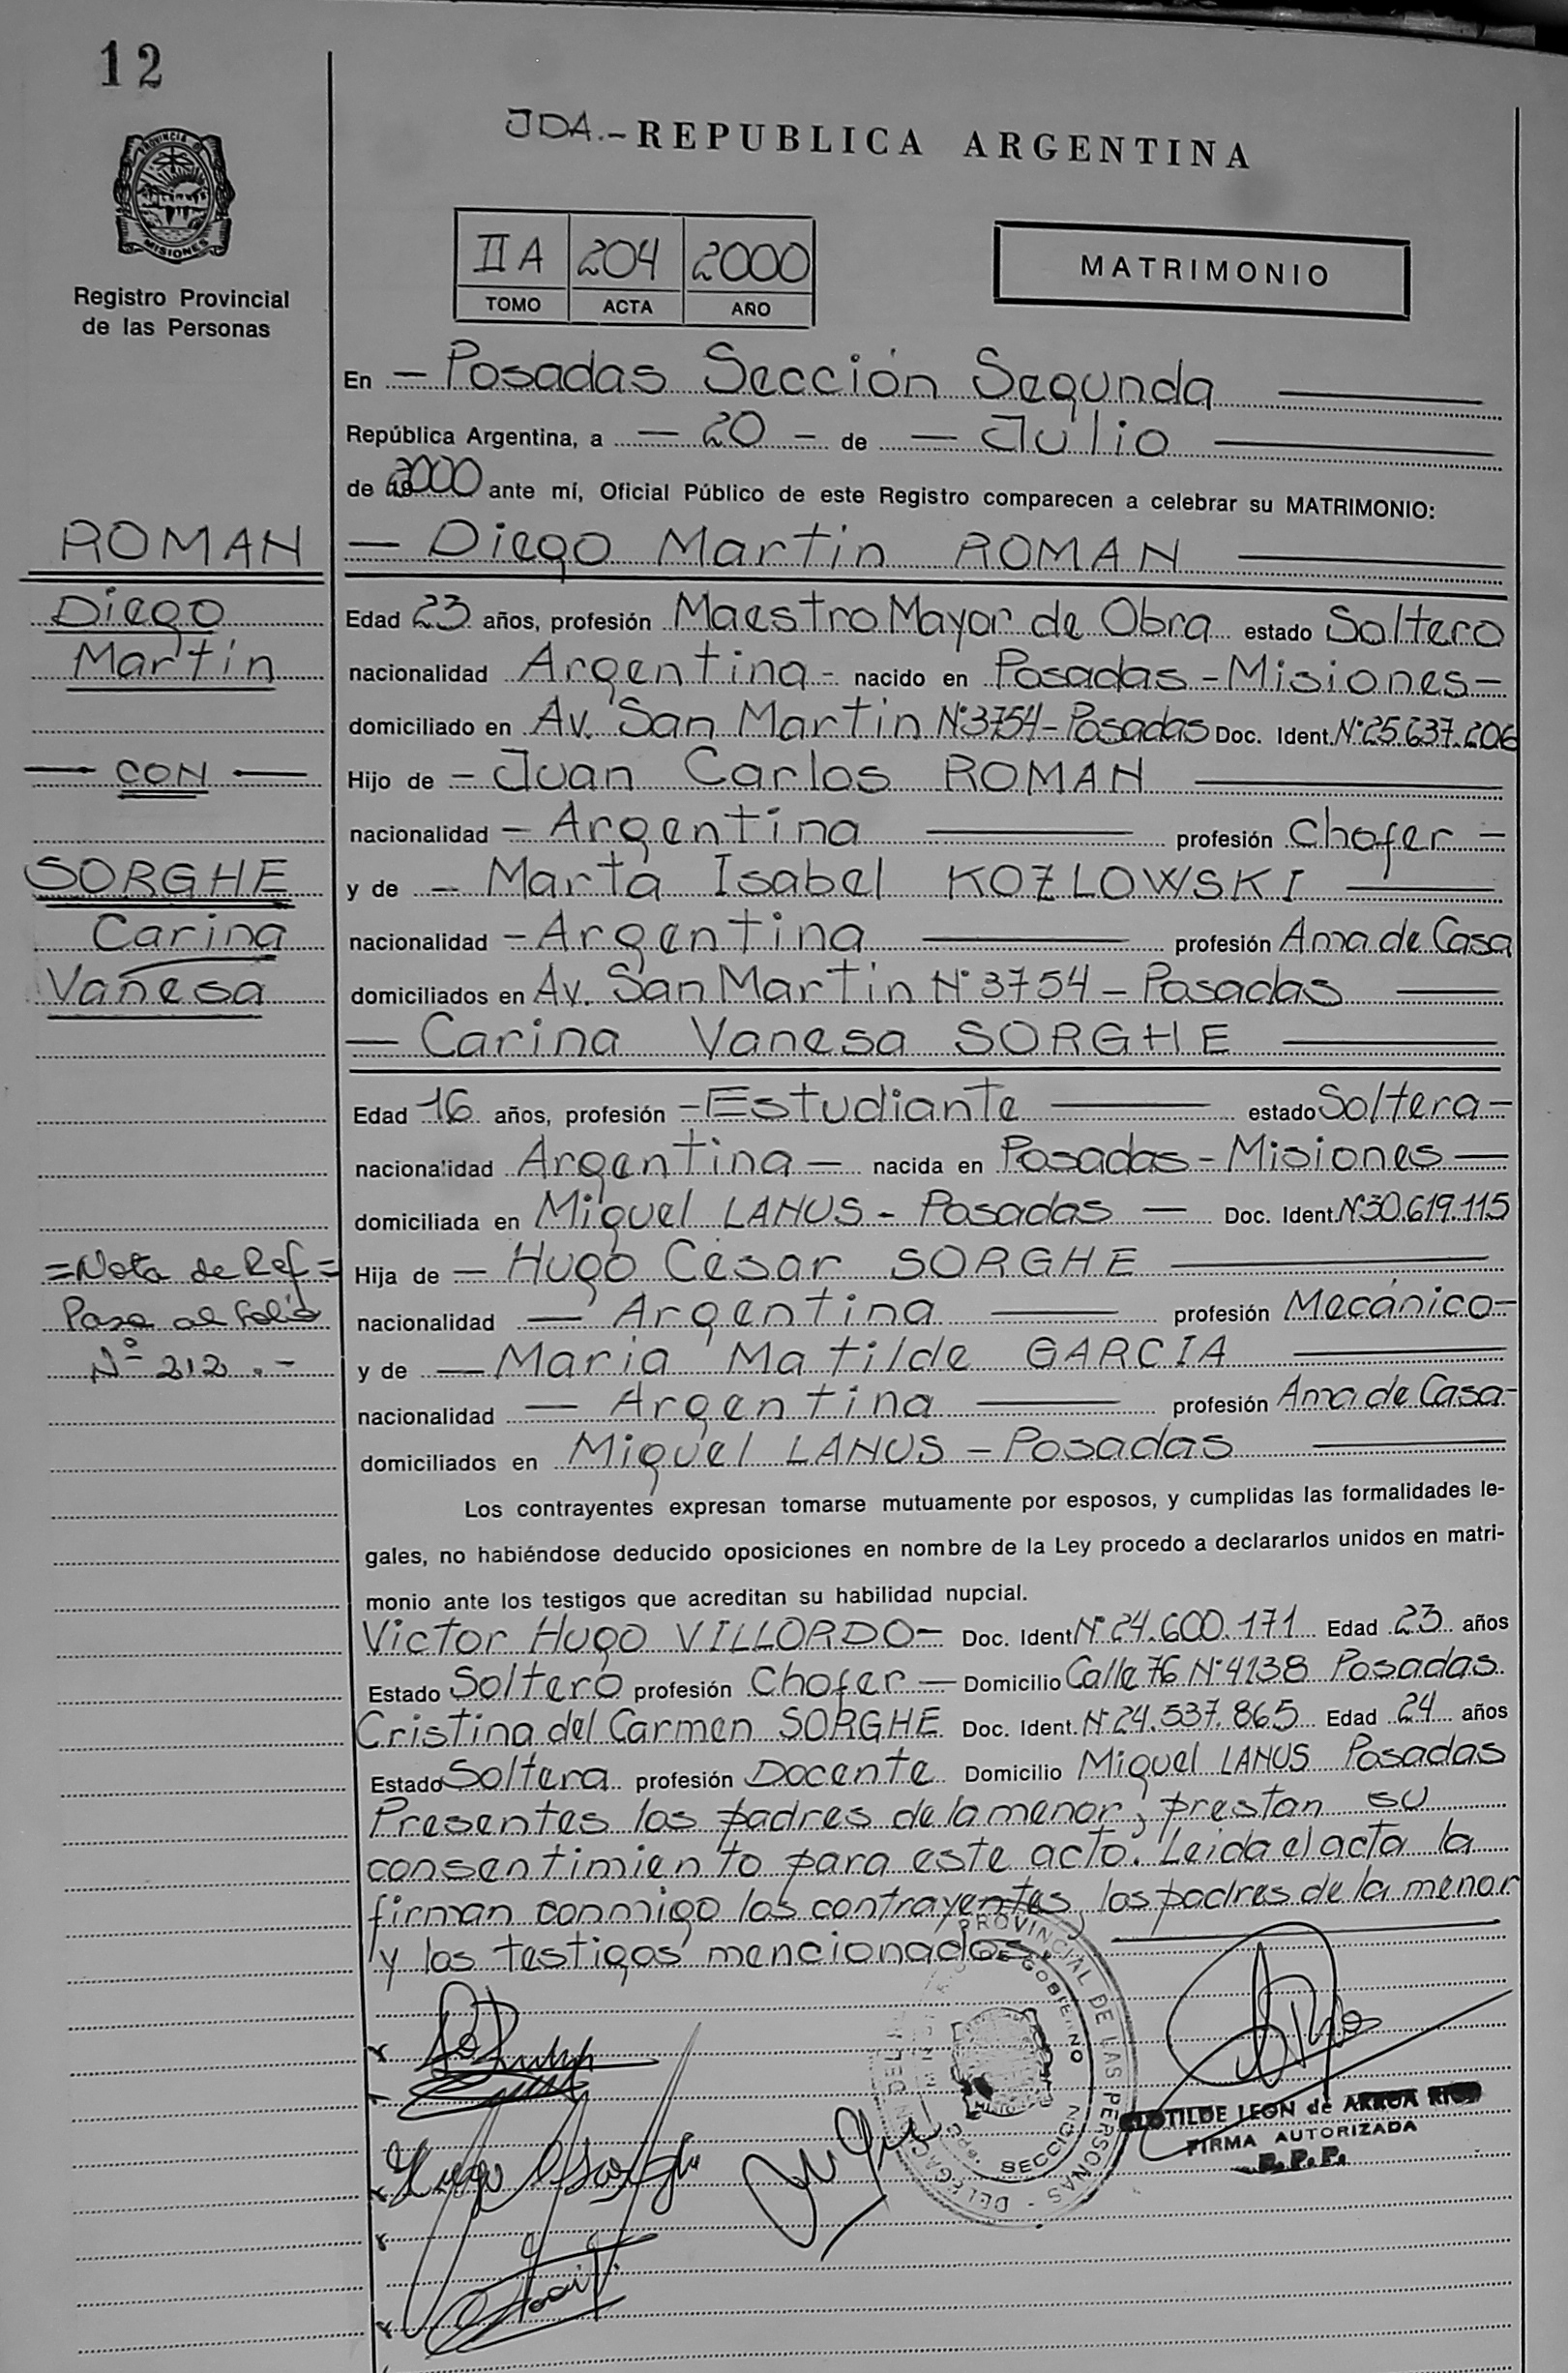 12
PROVINCIA DE
MISIONES
Registro Provincial
de las Personas
JDA.- REPUBLICA ARGENTINA
II A 204 2000
TOMO ACTA AÑO
MATRIMONIO
En — Posadas Sección Segunda
República Argentina, a — 20 — de — Julio
de 2000 ante mí, Oficial Público de este Registro comparecen a celebrar su MATRIMONIO:
ROMAN
Diego
Martin
— CON —
SORGHE
Carina
Vanesa
=Nota de Ref=
Pasa al folio
Nº 212.-
— Diego Martin ROMAN
Edad 23 años, profesión Maestro Mayor de Obra estado Soltero
nacionalidad Argentina - nacido en Posadas - Misiones -
domiciliado en Av. San Martin Nº 3754 - Posadas Doc. Ident. Nº 25.637.206
Hijo de - Juan Carlos ROMAN
nacionalidad - Argentina profesión Chofer -
y de - Marta Isabel KOZLOWSKI
nacionalidad - Argentina profesión Ama de Casa
domiciliados en Av. San Martin Nº 3754 - Posadas
— Carina Vanesa SORGHE
Edad 16 años, profesión - Estudiante estado Soltera -
nacionalidad Argentina — nacida en Posadas - Misiones —
domiciliada en Miguel LANUS - Posadas — Doc. Ident. Nº 30.619.115
Hija de — Hugo César SORGHE
nacionalidad — Argentina profesión Mecánico -
y de — Maria Matilde GARCIA
nacionalidad — Argentina profesión Ama de Casa -
domiciliados en Miguel LANUS - Posadas
Los contrayentes expresan tomarse mutuamente por esposos, y cumplidas las formalidades le-
gales, no habiéndose deducido oposiciones en nombre de la Ley procedo a declararlos unidos en matri-
monio ante los testigos que acreditan su habilidad nupcial.
Victor Hugo VILLORDO - Doc. Ident Nº 24.600.171 Edad 23 años
Estado Soltero profesión Chofer — Domicilio Calle 76 Nº 4138 Posadas
Cristina del Carmen SORGHE Doc. Ident. Nº 24.537.865 Edad 24 años
Estado Soltera profesión Docente Domicilio Miguel LANUS Posadas
Presentes los padres de la menor, prestan su
consentimiento para este acto. Leida el acta la
firman conmigo los contrayentes, los padres de la menor
y los testigos mencionados.
PROVINCIAL DE LAS PERSONAS - DELEGA
GOBIERNO
SECCION
CLOTILDE LEON de ARRUA
FIRMA AUTORIZADA
R.P.P.